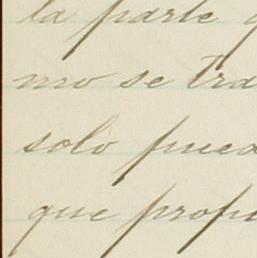 la parte
mo se tra
solo pued
que propu